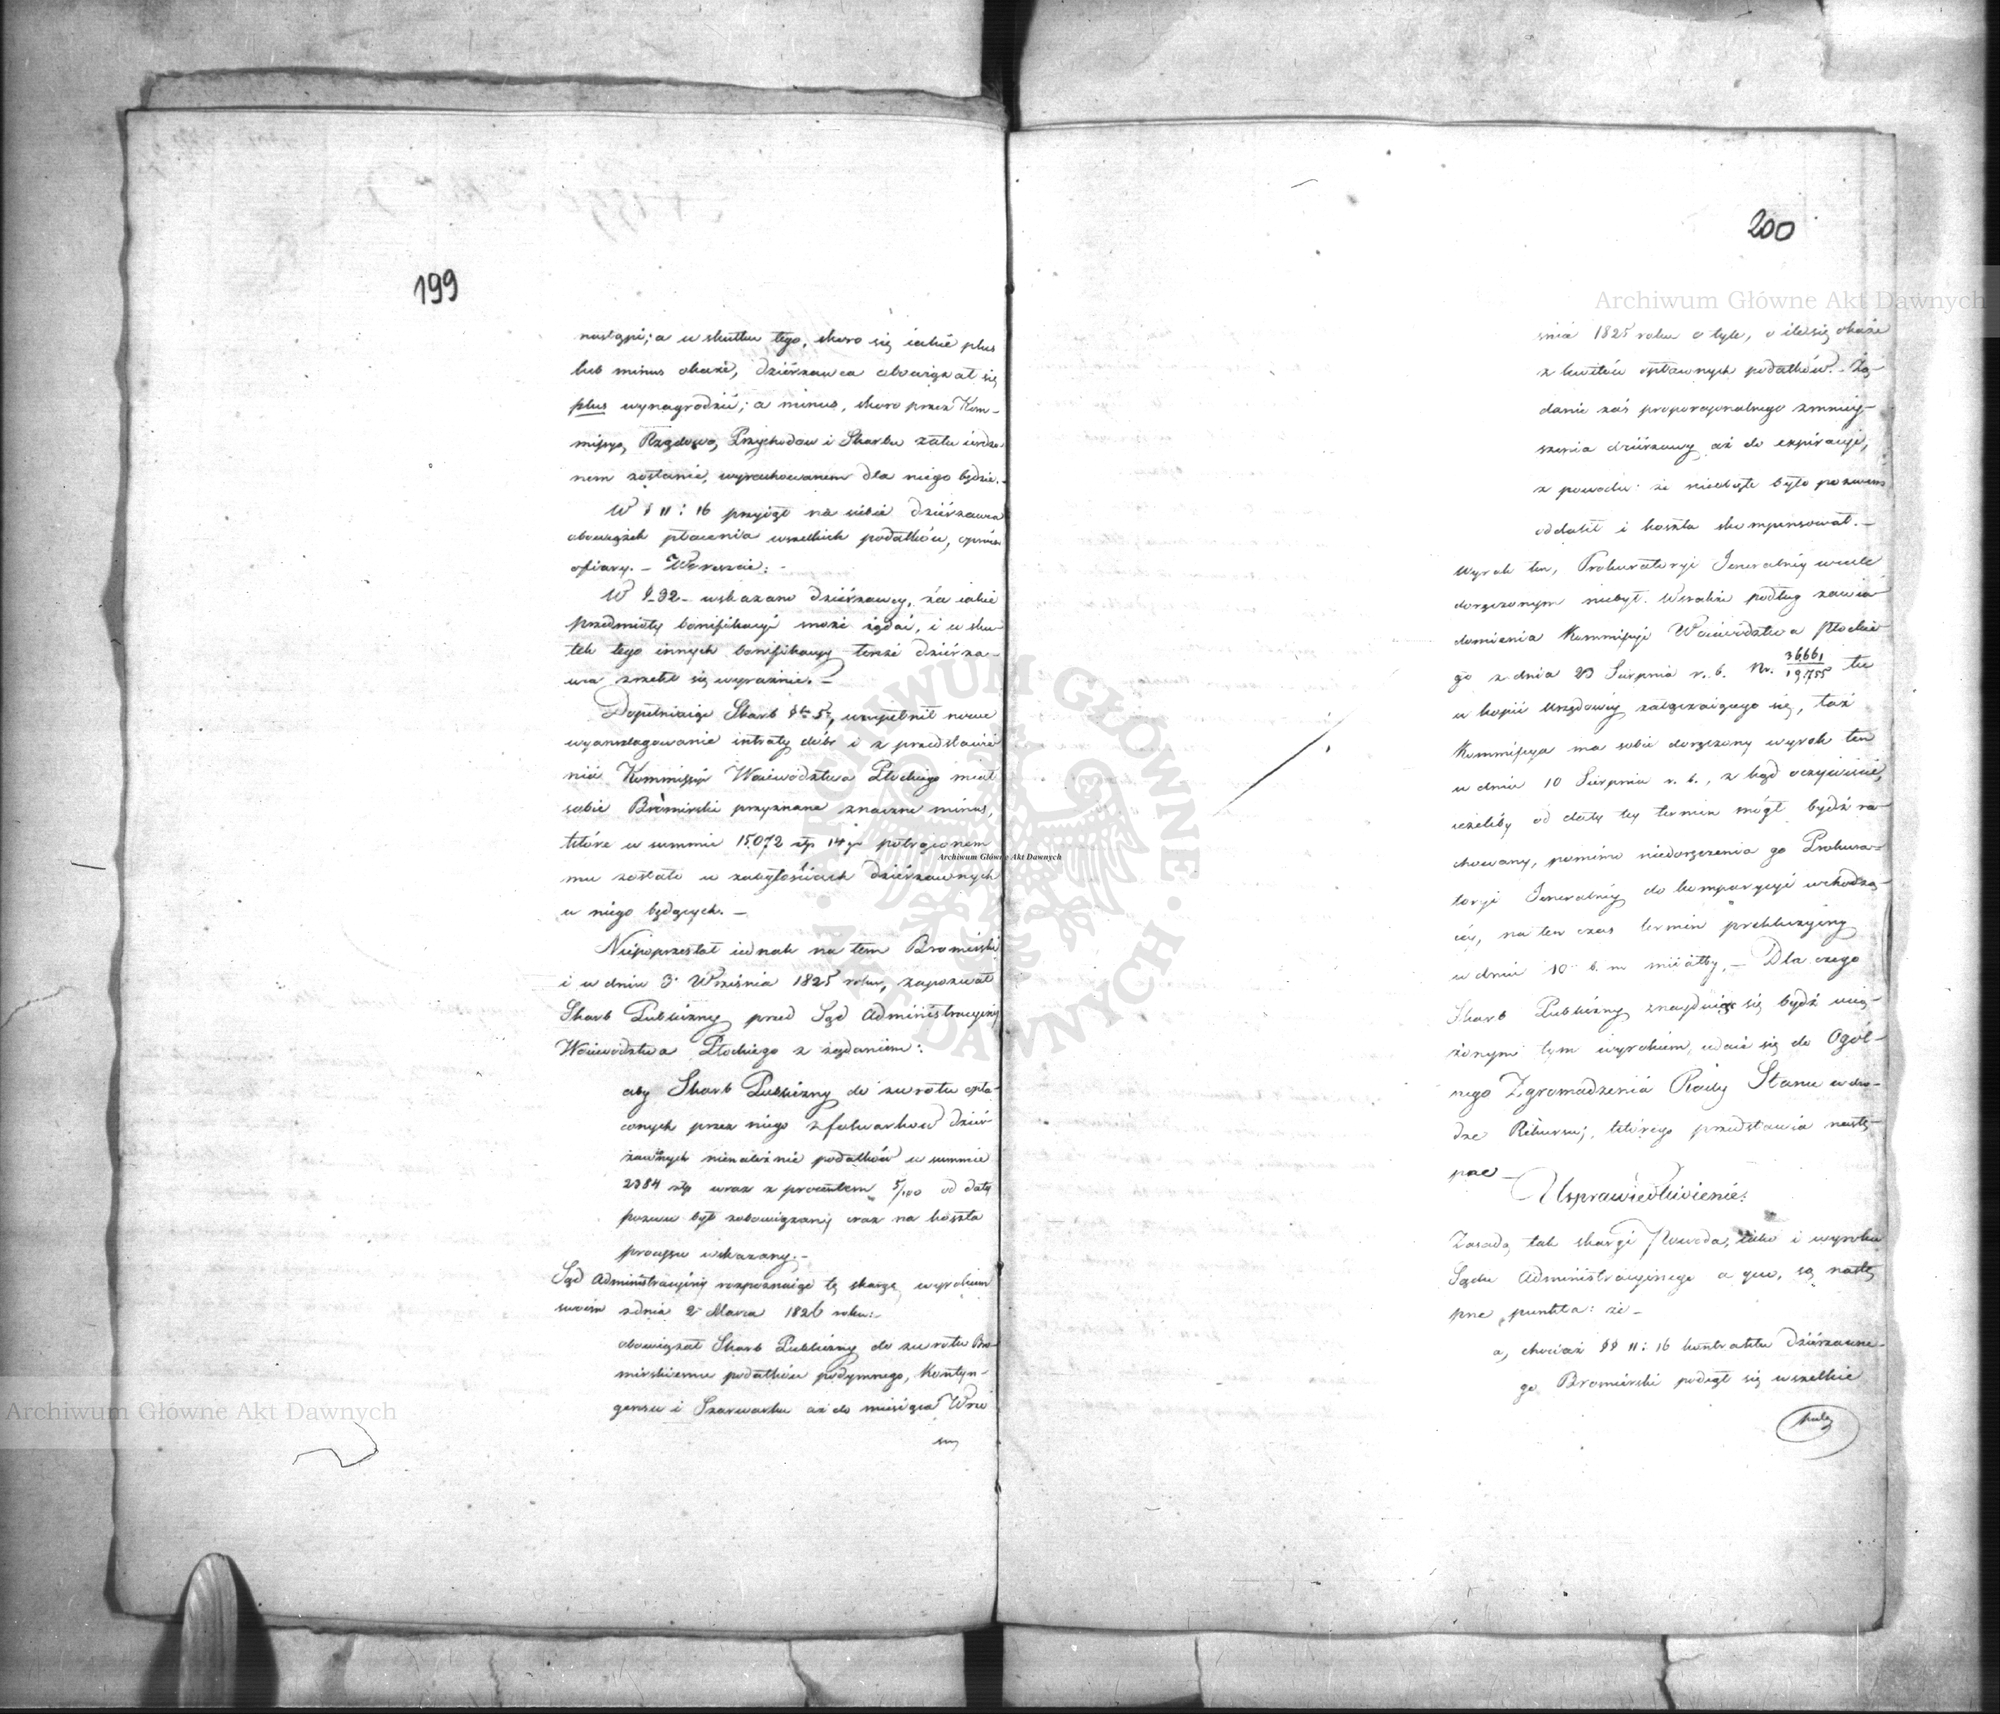 199
nastąpi; a w skutku tego, skoro się iakie plus
lub minus okaże, dzierżawca obowiązał się
plus wynagrodzić; a minus, skoro przez Kom-
missyą Rządową Przychodow i Skarbu zatwierdzo-
nem zostanie, wyrachowanem dla niego będzie.-
W § 11 i 16 przyiął na siebie dzierżawca
obowiązek płacenia wszelkich podatków, oprócz
ofiary. - Wreszcie: -
W §-32- wskazano dzierżawcy, za iakie
przedmioty bonifikacyi może żądać, i w sku-
tek tego innych bonifikacyy tenże dzierża-
wca zrzekł się wyraźnie. -
Dopełniaiąc Skarb § 5, uzupełnił nowe
wyanszlagowanie intraty dóbr i z przedstawie-
nia Kommissyi Woiewództwa Płockiego miał
sobie Bromirski przyznane znaczne minus,
które w summie 15,072 złp 14 gr potrąconem
mu zostało w zaległościach dzierżawnych
u niego będących. -
Niepoprzestał iednak na tem Bromirski
i w dniu 3 Września 1825 roku, zapozwał
Skarb Publiczny przed Sąd Administracyiny
Woiewództwa Płockiego z żądaniem:
aby Skarb Publiczny do zwrotu opła-
conych przez niego z folwarków dzier-
żawnych nienależnie podatków w summie
2384 złp wraz z procentem 5/100 od daty
pozwu był zobowiązany oraz na koszta
processu wskazany. -
Sąd Administracyiny rozpoznaiąc tę skargę wyrokiem
swoim z dnia 2 Marca 1826 roku:
obowiązał Skarb Publiczny do zwrotu Bro-
mirskiemu podatków podymnego, Kontyn-
gensu i Szarwarku aż do miesiąca Wrze
śnia
200
śnia 1825 roku o tyle, o ile się okaże
z kwitów opłaconych podatków. Żą-
danie zaś proporcyonalnego zmniey-
szenia dzierżawy aż do exspiracyi,
z powodu: że nieobięte było pozwem
oddalił i koszta skompensował. -
Wyrok ten, Prokuratoryi Jeneralney wcale
doręczonym niebył. Wszakże podług zawia-
domienia Kommissyi Woiewództwa Płockie-
go z dnia 23 Sierpnia r. b. Nr. 36661/19,755 tu
w kopii Urzędowey załączaiącego się, taż
Kommissya ma sobie doręczony wyrok ten
w dniu 10 Sierpnia r. b., z kąd oczywiście,
ieżeliby od daty tey termin mógł bydź ra-
chowany, pomimo niedoręczenia go Prokura-
toryi Jeneralney do komparycyi wchodzą-
cey, na ten czas termin prekluzyiny
w dniu 10 b. m miałby. - Dla czego
Skarb Publiczny znayduiąc się bydź ucią-
żonym tym wyrokiem, udaie się do Ogól-
nego Zgromadzenia Rady Stanu w dro-
dze Rekursu; którego przedstawia nastę-
pne -
Usprawiedliwienie:
Zasadą tak skargi Powoda, iako i wyroku
Sądu Administracyinego a quo, są nastę
pne punkta: że -
a, chociaż §§ 11 i 16 kontraktu dzierżawne-
go Bromirski podiął się wszelkie